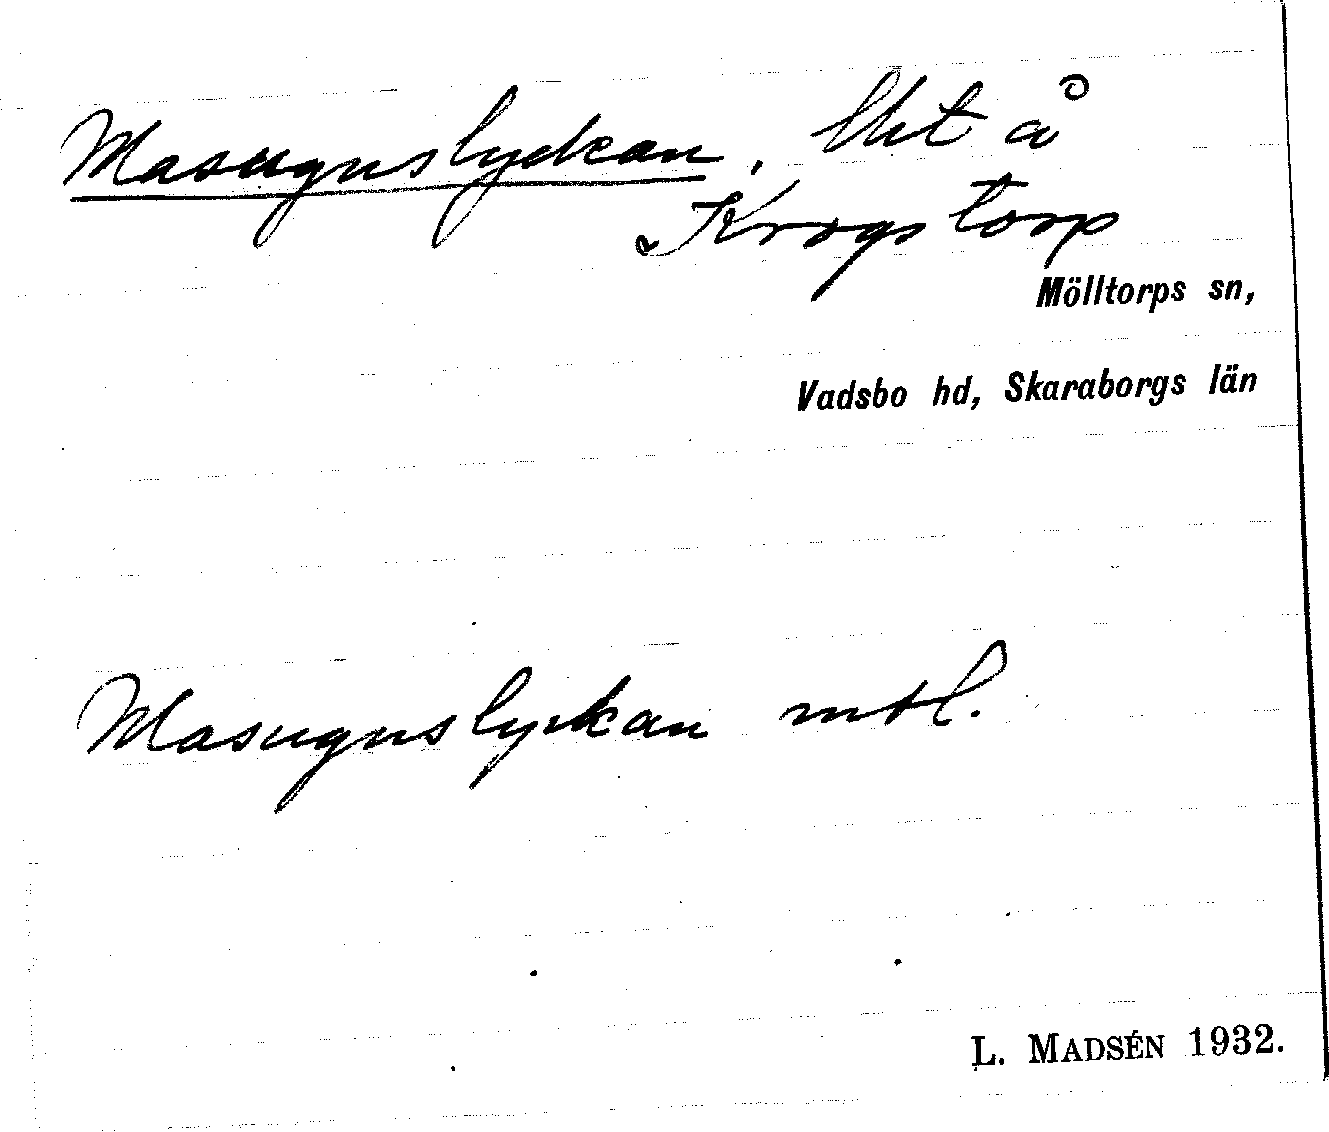 Masugnslyckan, lht å
Krogstorp
Mölltorps sn,
Vadsbo hd, Skaraborgs län
Masugnslyckan mtl.
L. MADSÉN 1932.